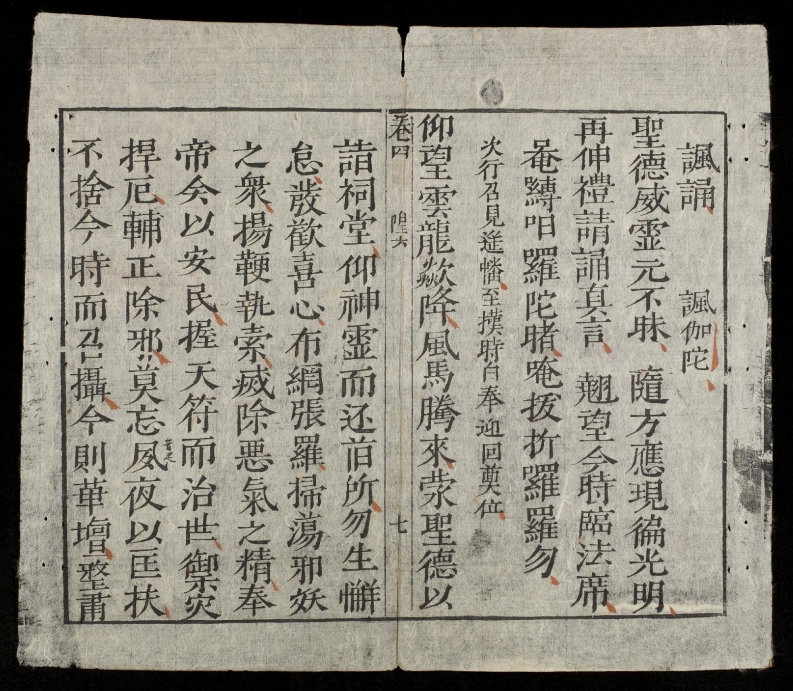 諷誦 諷伽陀
聖德威靈元不昧 隨方應現徧光明
再伸禮請誦真言 翹望今時臨法席
唵縛呾羅陀睹唵拔折羅羅勿
次行召見進旛至摸時白奉迎回奠位
仰望雲龍歘降風馬騰來蒙聖德以
卷四 隍六 七
詣祠堂仰神靈而还旧所勿生懈
怠發歡喜心布網張羅掃蕩邪妖
之衆揚鞭執索威除惡氣之精奉
帝矣以安民握天符而治世禦灾
捍厄輔正除邪莫忘夙夜以匡扶
不捨今時而召攝今則華壇整肅